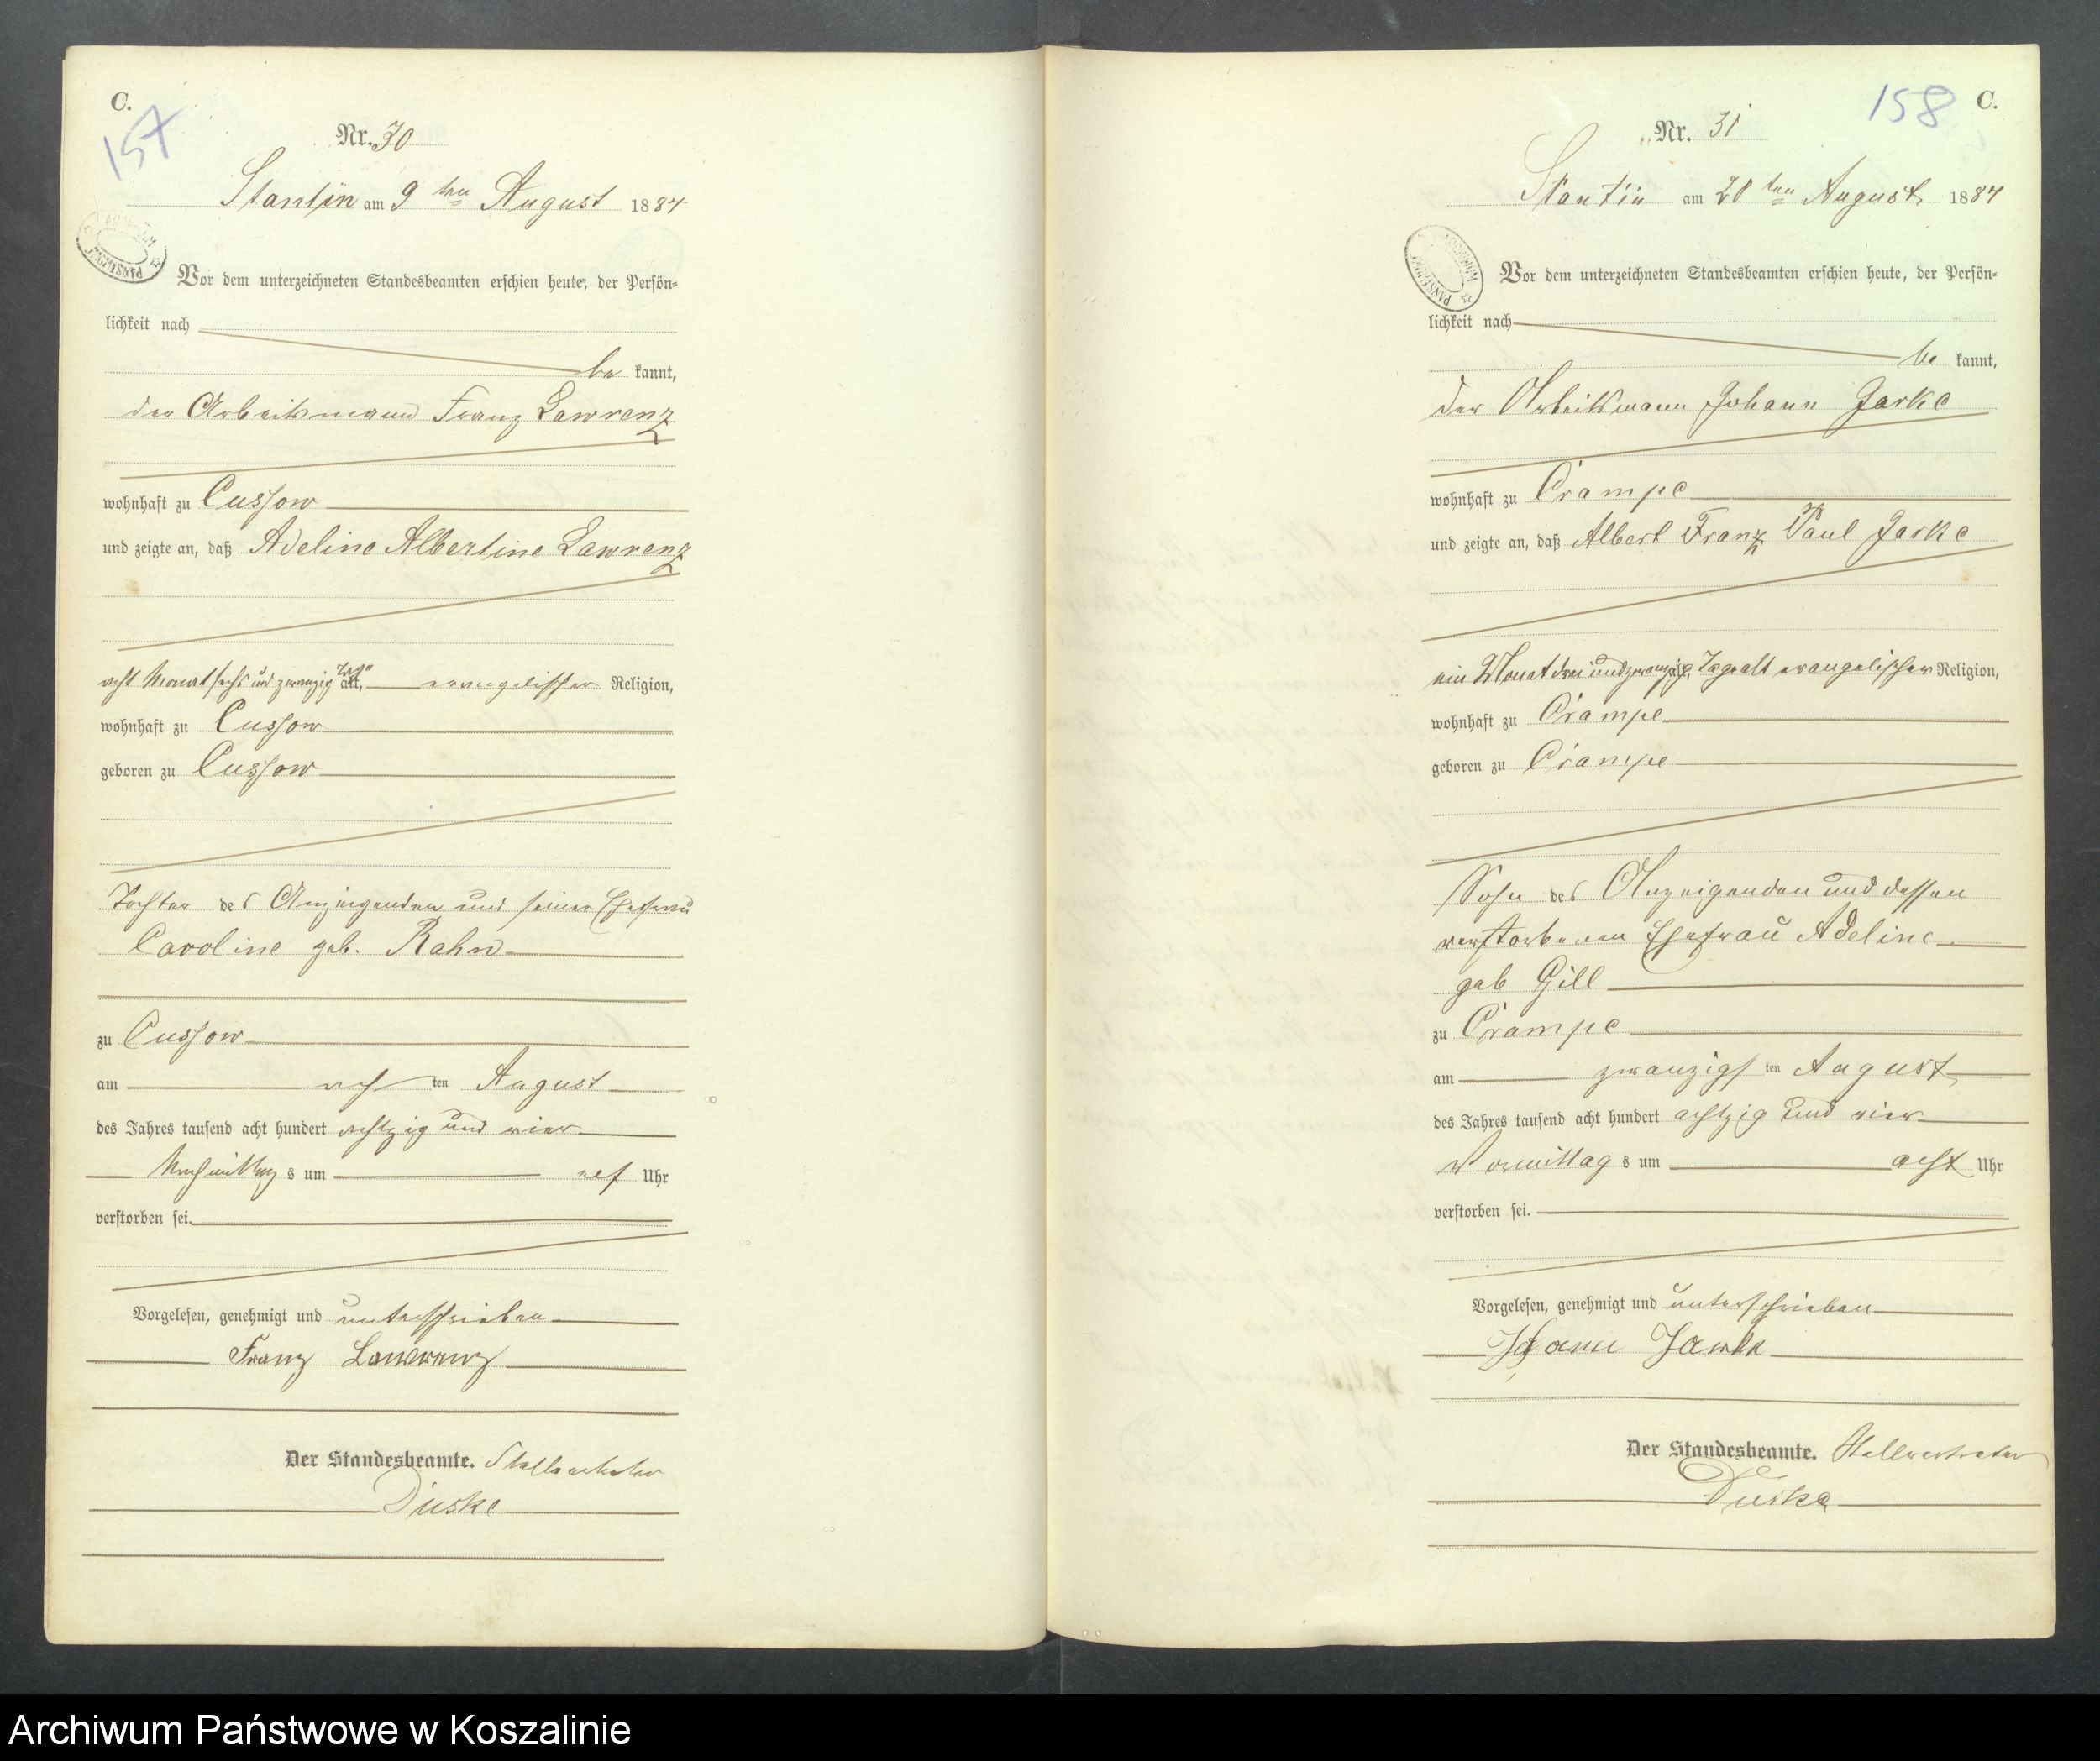 C.
157
Nr. 30
Stantin am 9ten August 1884
Vor dem unterzeichneten Standesbeamten erschien heute, der Persön-
lichkeit nach
be kannt,
der Arbeitsmann Franz Lawrenz
wohnhaft zu Cussow
und zeigte an, daß Adeline Albertine Lawrenz
acht Monat sechs und zwanzig Tage alt, evangelischer Religion,
wohnhaft zu Cussow
geboren zu Cussow
Tochter des Anzeigenden und seiner Ehefrau
Caroline geb. Rahn
zu Cussow
am ach ten August
des Jahres tausend acht hundert achtzig und vier
Nachmittag s um elf Uhr
verstorben sei.
Vorgelesen, genehmigt und unterschrieben
Franz Lawrenz
Der Standesbeamte. Stellvertreter
Duske
158 C.
Nr. 31
Stantin am 20ten August 1884
Vor dem unterzeichneten Standesbeamten erschien heute, der Persön-
lichkeit nach
be kannt,
der Arbeitsmann Johann Jarke
wohnhaft zu Crampe
und zeigte an, daß Albert Franz Paul Jarke
ein Monat drei und zwanzig Tage alt evangelischer Religion,
wohnhaft zu Crampe
geboren zu Crampe
Sohn des Anzeigenden und dessen
verstorbenen Ehefrau Adeline
geb Gill
zu Crampe
am zwanzigs ten August
des Jahres tausend acht hundert achtzig und vier
Vormittag s um acht Uhr
verstorben sei.
Vorgelesen, genehmigt und unterschrieben
Johann Jarke
Der Standesbeamte. Stellvertreter
Duske
Archiwum Państwowe w Koszalinie